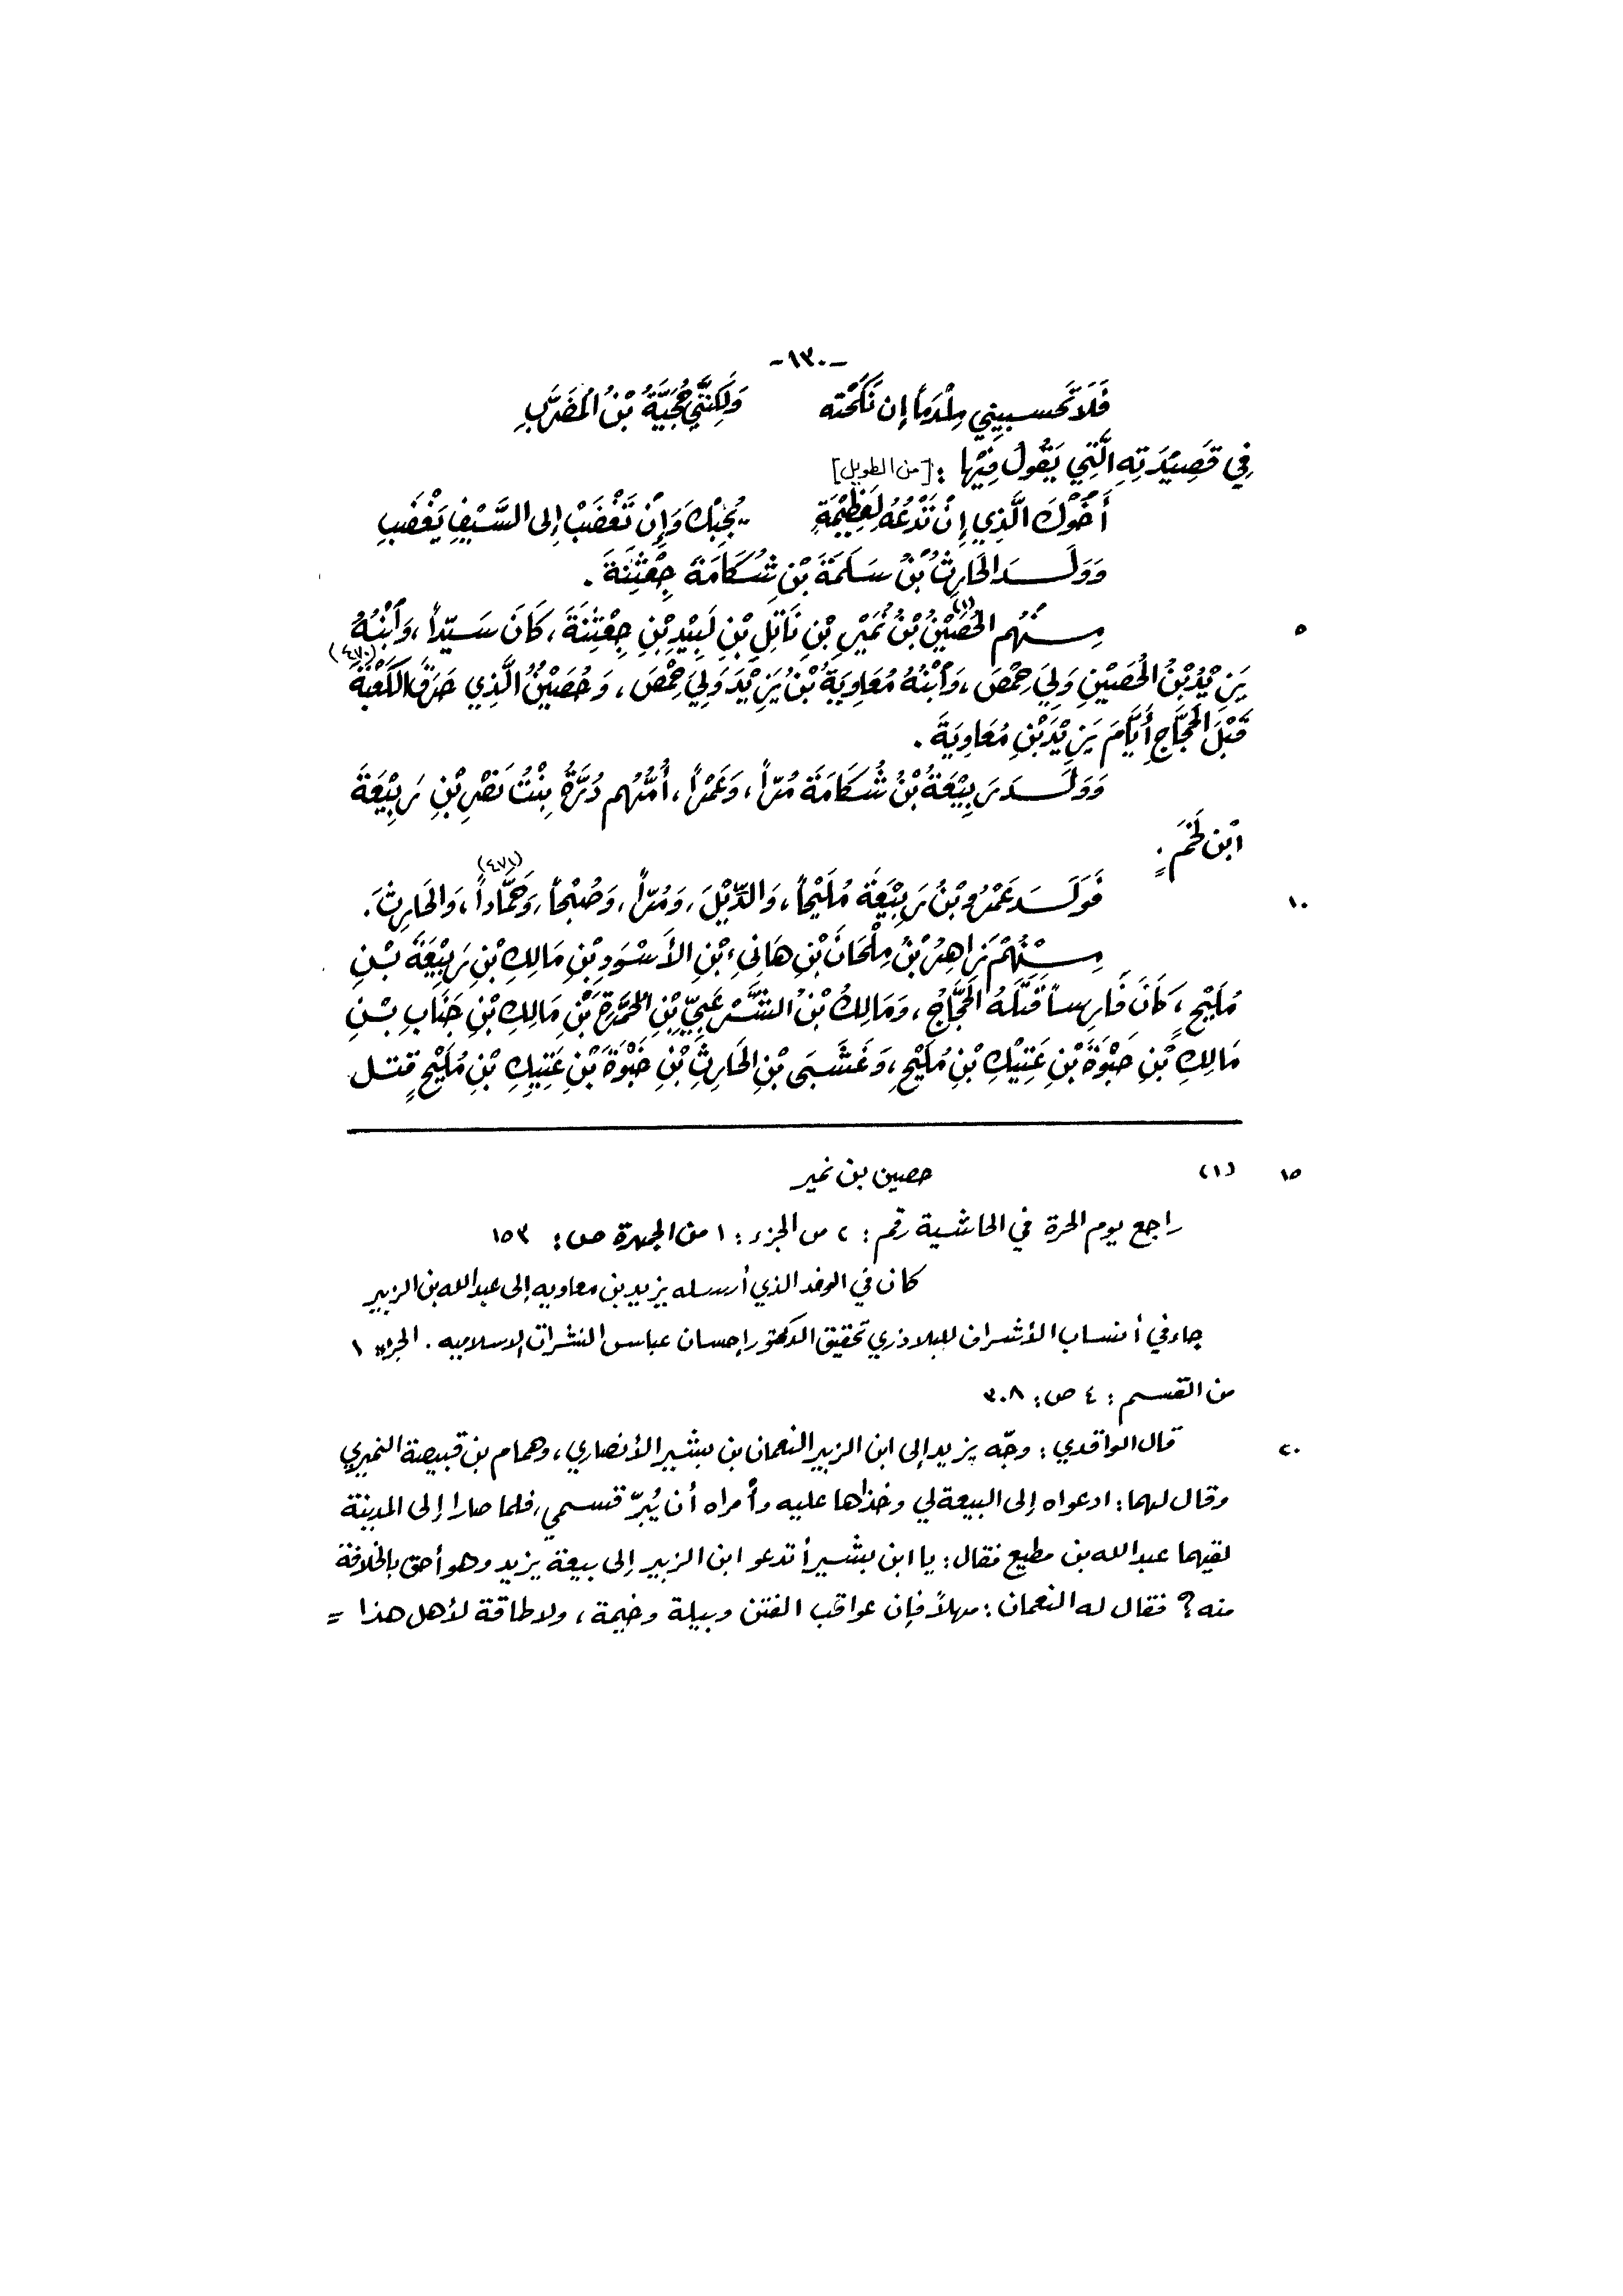 -١٣٠-
فَلَا تَحسبِيني مِلْدَماً إن نَكَحْتِه وَلَكِنَّنِي حُجَيَّةُ بْنُ المُضَرَّبِ
فِي قَصِيْدَتِهِ الَّتِي يَقُولُ فِيْهَا : [من الطويل]
أَخُوْكَ الَّذِي إِنْ تَدْعُهُ لِعَظِيْمَةٍ يُجِبْكَ وَإِنْ تَغْضَبْ إلى السَّيْفِ يَغْضَبِ
وَوَلَــدَ الحَارِثُ بْنُ سَلَمَةَ بْنِ شُكَامَةَ جِعْثِنَةَ .
٥ مِــنْهُم الحُصَيْنُ (١) بْنُ نُمَيْرِ بْنِ نَاتِلِ بْنِ لَبِيْدِ بْنِ جِعْثِنَةَ ، كَانَ سَيّداً ، وَابْنُهُ
يَزِيْدُ بْنُ الحُصَيْنِ وَلِيَ حِمْصَ ، وَابْنُهُ مُعَاوِيَةُ بْنُ يَزِيْدَ وَلِيَ حِمْصَ ، وَحُصَيْنٌ الَّذِي حَرَّقَ الكَعْبَةَ (٤٧٠)
قَبْلَ الحَجَّاجِ أَيَّامَ يَزِيْدَ بْنِ مُعَاوِيَةَ .
وَوَلَــدَ رَبِيْعَةُ بْنُ شُكَامَةَ مُرّاً ، وَعَمْراً ، أُمُّهُم دُرَّةُ بِنْتُ نَصْرِ بْنِ رَبِيْعَةَ
ابْن لَخْمٍ .
١٠ فَوَلَــدَ عَمْرُو بْنُ رَبِيْعَةَ مُلَيْحاً ، وَالدِّيْلَ ، وَمُرّاً ، وَصُبْحاً ، وَحَمَّاداً (٤٧١) ، وَالحَارِثَ .
مِــنْهُمْ زَاهِرُ بْنُ مِلْحَانَ بْنِ هَانِىءِ بْنِ الأَسْوَدِ بْنِ مَالِكِ بْنِ رَبِيْعَةَ بْــنِ
مُلَيْحٍ ، كَانَ فَارِساً قَتَلَهُ الحَجَّاجُ ، وَمَالِكُ بْنُ الشَّرْعَبِيِّ بْنِ الحُمَّرَةِ بْنِ مَالِكِ بْنِ جَنَابِ بْــنِ
مَالِكِ بْنِ حَبْوَةَ بْنِ عَتِيْكِ بْنِ مُلَيْحٍ ، وَعَشَّبَى بْنِ الحَارِثِ بْنِ حَبْوَةَ بْنِ عَتِيكِ بْنِ مُلَيْحٍ قتــل
١٥ (١) حصين بن نمير
راجع يوم الحرة في الحاشية رقم : ٢ من الجزء : ١ من الجمهرة ص : ١٥٣
كان في الوفد الذي أرسله يزيد بن معاويه إلى عبدالله بن الزبير
جاء في أنساب الأشراف للبلاذري تحقيق الدكتور إحسان عباس النشرات الاسلاميه . الجزء ١
من القسم : ٤ ص : ٣٠٨
٢٠ قال الواقدي : وجّه يزيد إلى ابن الزبير النعمان بن بشير الأنصاري ، وهمام بن قبيصة النميري
وقال لهما : ادعواه إلى البيعة لي وخذاها عليه وأمراه أن يُبرّ قسمي ، فلما صارا إلى المدينة
لقيهما عبدالله بن مطيع فقال : يا ابن بشير أتدعو ابن الزبير إلى بيعة يزيد وهو أحق بالخلافة
منه ؟ فقال له النعمان : مهلاً فإن عواقب الفتن وبيلة وخيمة ، ولا طاقة لأهل هذا =